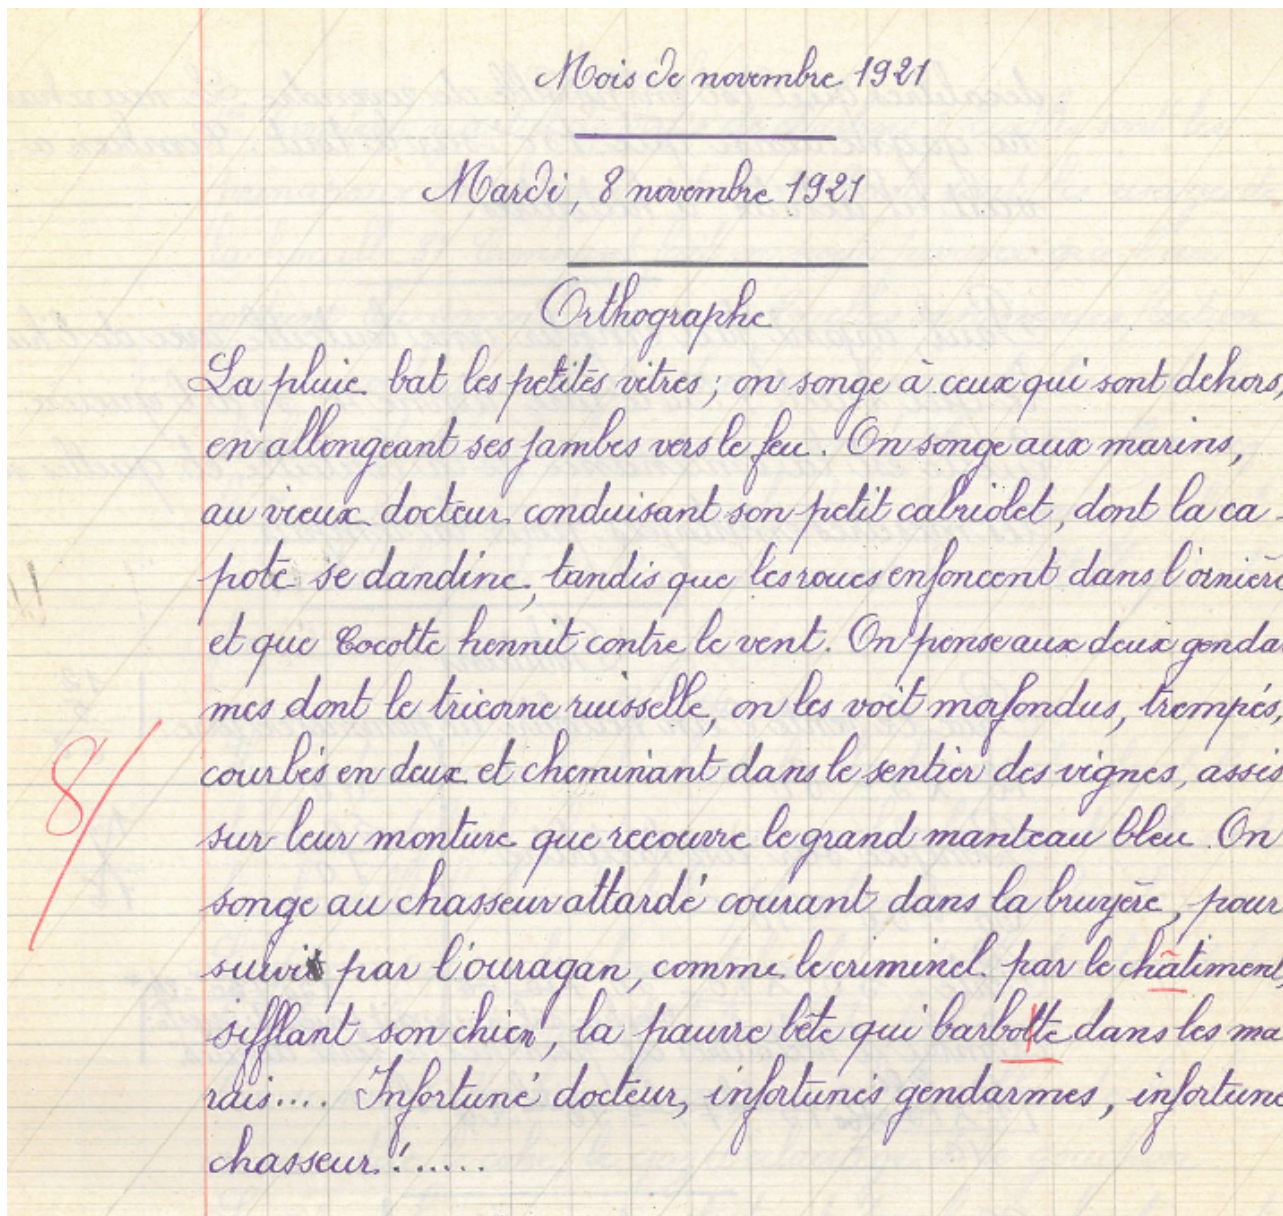 Mois de novembre 1921
Mardi, 8 novembre 1921
Orthographe
La pluie bat les petites vitres ; on songe à ceux qui sont dehors,
en allongeant ses jambes vers le feu. On songe aux marins,
au vieux docteur conduisant son petit cabriolet, dont la ca
pote se dandine, tandis que les roues enfoncent dans l'ornière
et que Cocotte hennit contre le vent. On pense aux deux genda
mes dont le tricorne ruisselle, on les voit morfondus, trempés,
courbés en deux et cheminant dans le sentier des vignes, assis
sur leur monture que recouvre le grand manteau bleu. On
songe au chasseur attardé courant dans la bruyère, pour
suivi par l'ouragan, comme le criminel par le châtiment,
8/
sifflant son chien, la pauvre bête qui barbotte dans les ma
rais.... Infortuné docteur, infortunés gendarmes, infortuné
chasseur !.....